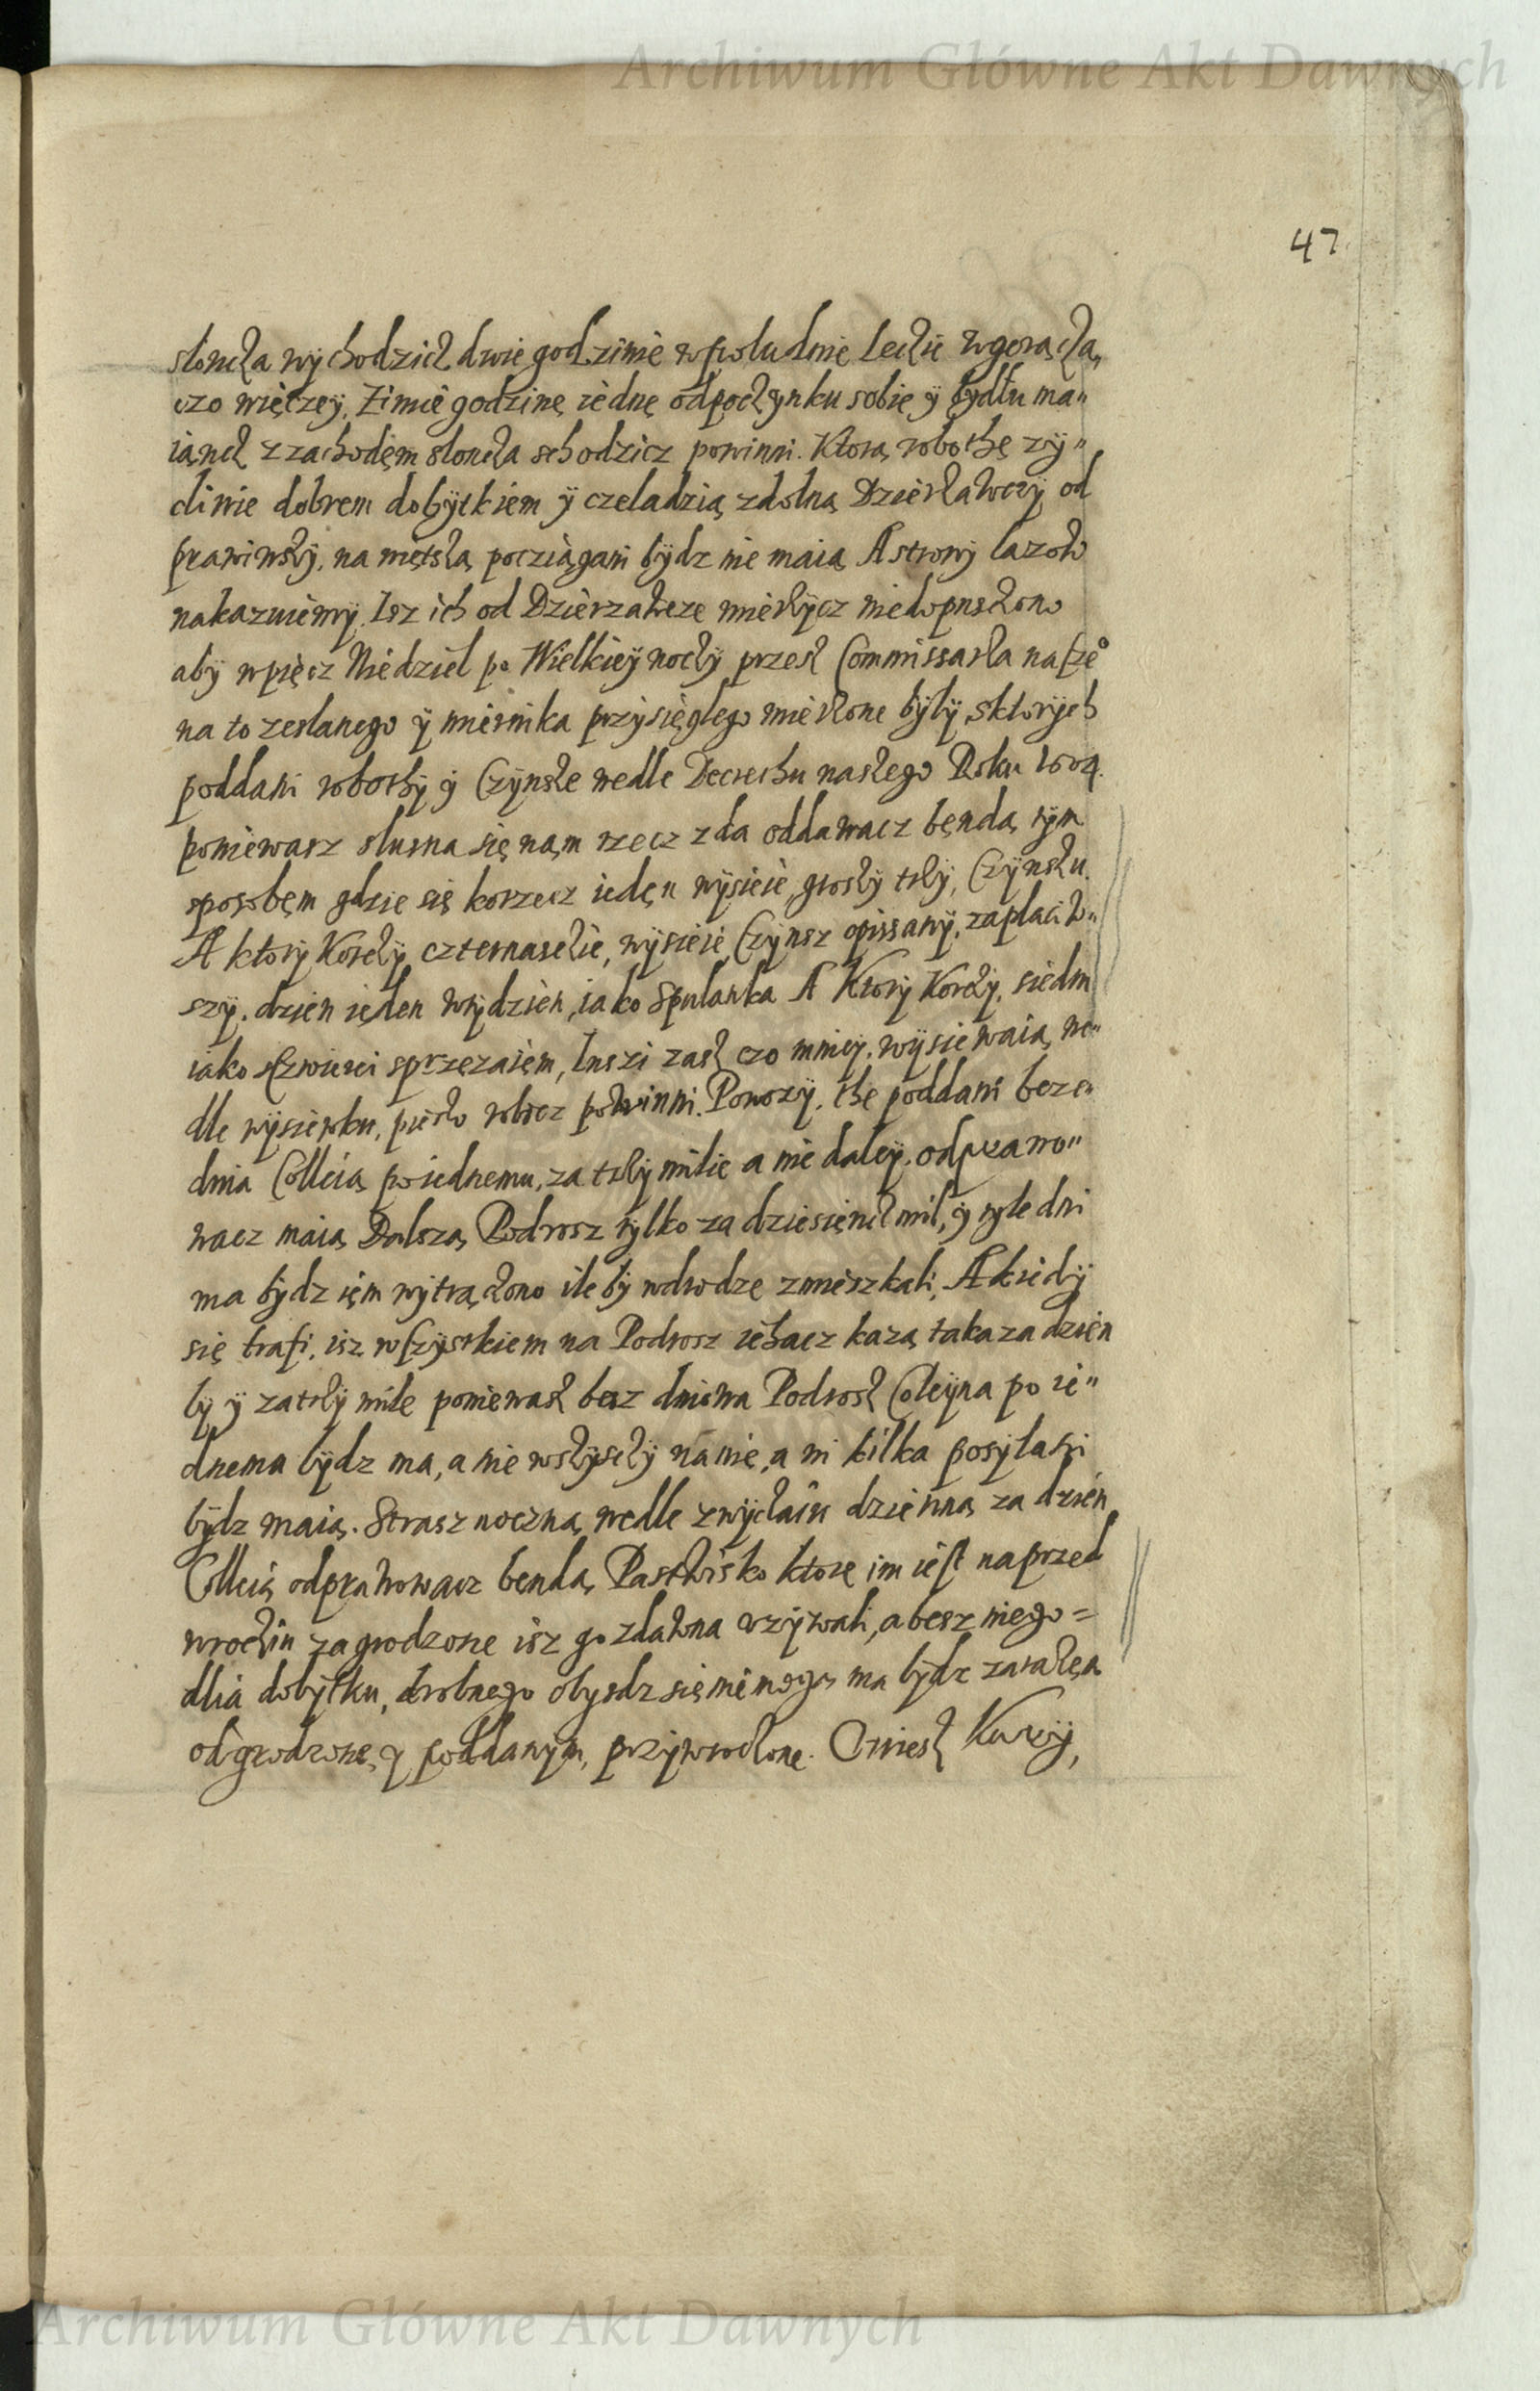 Archiwum Główne Akt Dawnych
47
sloncza wychodzicz dwie godzinie wpoludnie leczie wgoracza,
czo więczey, Zimie godzinę iednę odpoczynku sobie y bydłu ma„
iąncz z zachodęm sloncza schodzicz powinni. Ktorą robothę zy„
cliwie dobrem dobytkiem y czeladzią zdolną Dzierzawczy od
prawiwszy, na męisza pocziągani bydz nie maią A strony lazow
nakazuiemy. Isz ich od Dzierzawcze mierzycz niedopuszczono
aby wpięcz Niedziel po Wielkiey noczy przesz Commissarza nasze°
na to zeslanego y miernika przysięglego mierzone były, sktorych
poddani robothy y Czynsze wedle Decrethu naszego Roku
poniewasz slusna się nam rzecz zda oddawacz będą tym
sposobęm gdzie się korzecz iedęn wysieie, groszy trzy, Czynszu.
A ktory Korczy czternascie, wysieie Czynsz opissany, zaplaciw„
szy, dzien ieden wtydzien, iako Spulanka A Ktory Korczy, siedm
iako sczwierci sprzezaiem, Inszi zasz czo mniey, wysiewaią, we„
dle wysiewku, pieszo robicz powinni. Powozy, the poddani beze„
dnia Colleią poiednemu, za trzy milie a nie daley, odprawo„
wacz maią Dalszą Podrosz tylko za dziesięncz mil, y tyle dni
ma bydz iem wytrączono ile by wdrodze zmieszkali, A kiedy
się trafi, isz wszystkiem na Podrosz iechacz każą taka za dzien
by y za trzy mile poniewasz besz dniowa Podrosz Coleyna po ie„
dnemu bydz ma, a nie wszysczy na nię, a ni kilka posyłani
bydz maią. Strasz noczną wedle zwyczaiu dzienną za dzien
Colleią odprawowacz bendą, Pastwisko ktore im iest naprzed
wroczin zagrodzone isz go zdawna vzywali, a besz niego =
dlia dobytku, drobnego obysdz się nie mogą ma bydz zarazęn
odgrodzone, y poddanym, przywroczone. Owiesz Kurzy,
Archiwum Główne Akt Dawnych